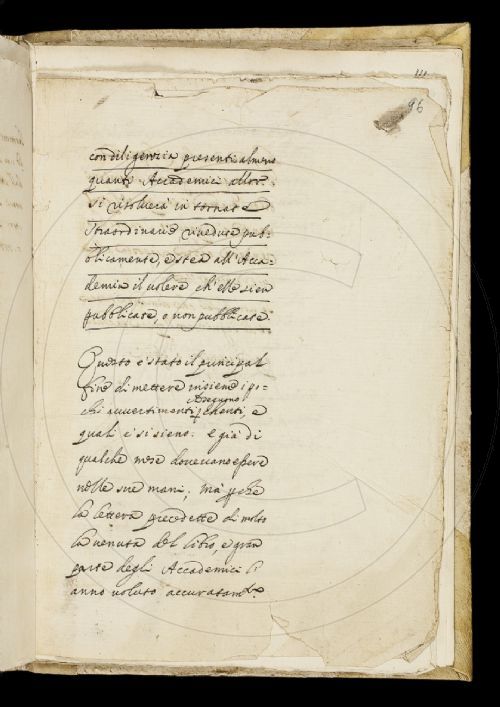 111
96
con diligenzia presenti almeno
quanti Accademici allor
si risolverà in tornate
straordinarie vedute pub:
blicamente, e stea all'Acca-
demia il volere ch'elle sien
pubblicate, o non pubblicate.
Questo è stato il principal
fine di mettere insieme i po-
chi avvertimenti che
Aseguono
quali ei si sieno. e già di
qualche mese dovevano essere
nelle sue mani; ma pche
la lettera precedette di molto
la venuta del libro, e gran
parte degli Accademici l'
anno voluto accuratam.te